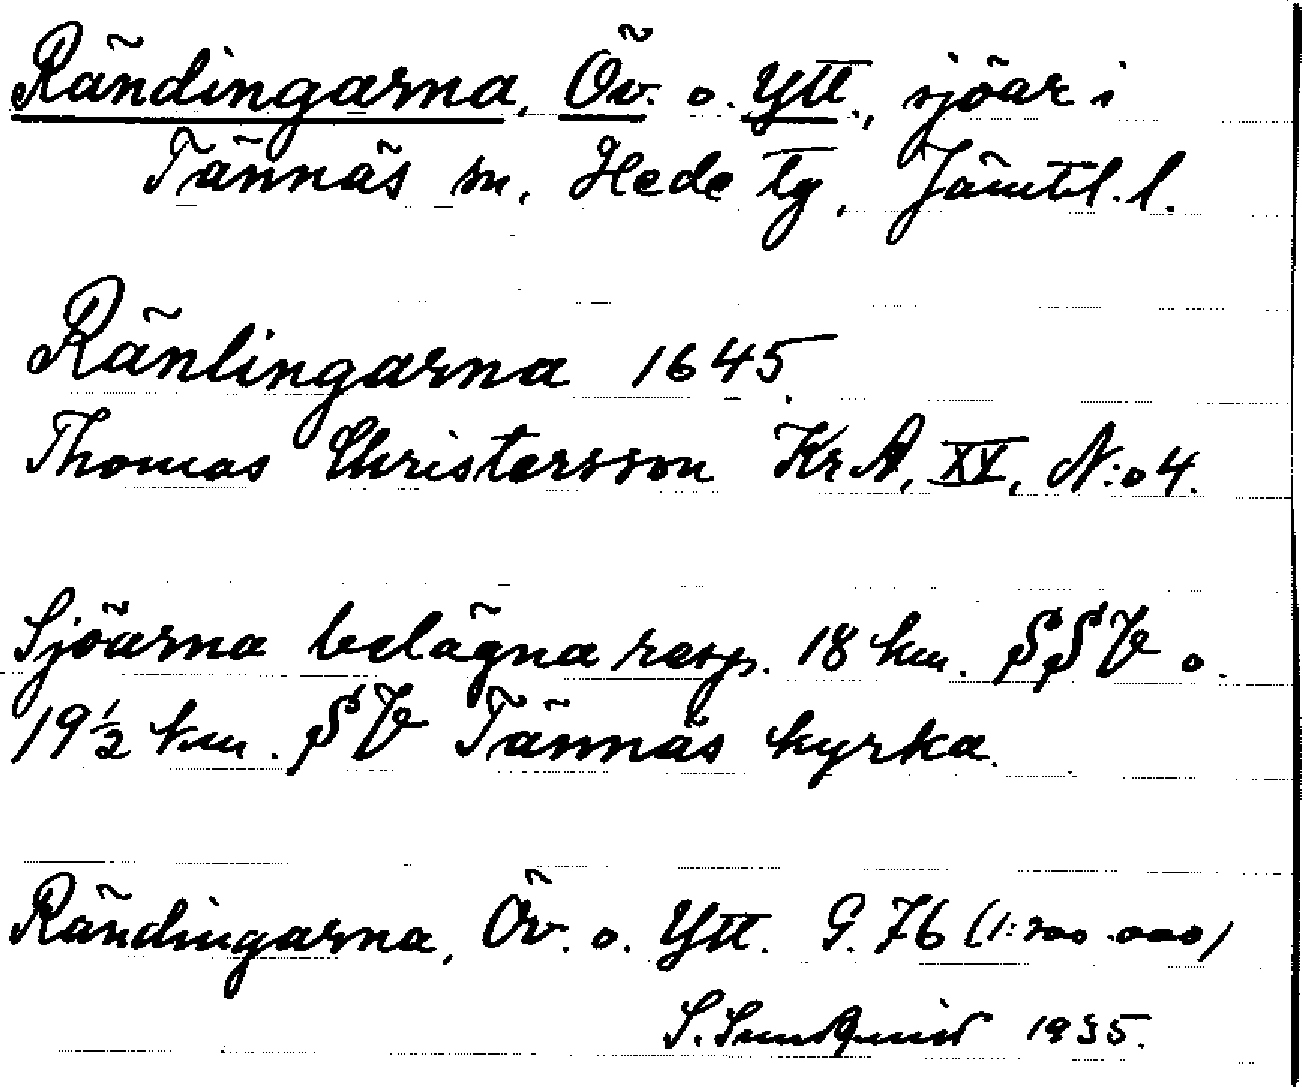 Rändingarna, Öv. o. Ytt., sjöar i
Tännäs sn, Hede tg, Jämtl. l.
Ränlingarna 1645.
Thomas Christersson Kr.A, XV, N:o 4.
Sjöarna belägna resp. 18 km. SSV o.
19 1/2 km. SV Tännäs kyrka.
Rändingarna, Öv. o. Ytt. G. 76 (1:200.000)
S. Sundquist 1935.